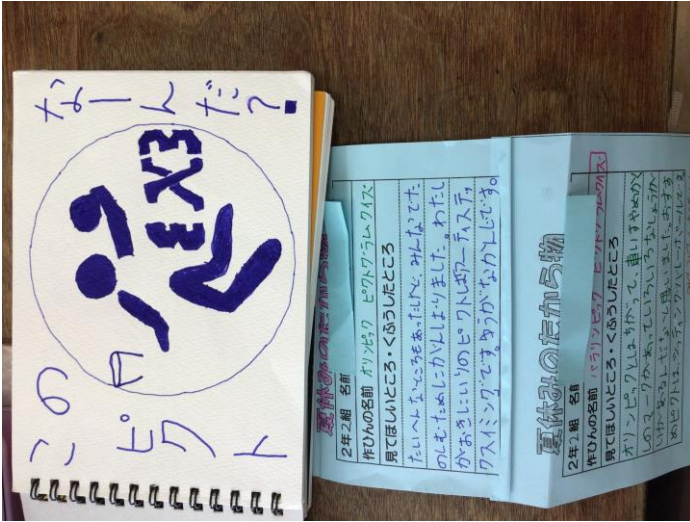 このピクト
なーんだ?
夏休みのたから物
2年2組 名前
作ひんの名前 オリンピック ピクトグラムクイズ
見てほしいところ・くふうしたところ
たいへんなところもあったけど、みんなでた
のしむためにがんばりました。わたし
がおきにいりのピクトはアーティスティッ
クスイミングです。ゆうがなかんじです。
夏休みのたから物
2年2組 名前
作ひんの名前 パラリンピック ピクトグラムクイズ
見てほしいところ・くふうしたところ
オリンピックとはちがって、車いすやめかく
しのマークがあっていろいろなしょうが
いがあるんだなと思いました。おすす
めピクトはシッティングバレーボールです